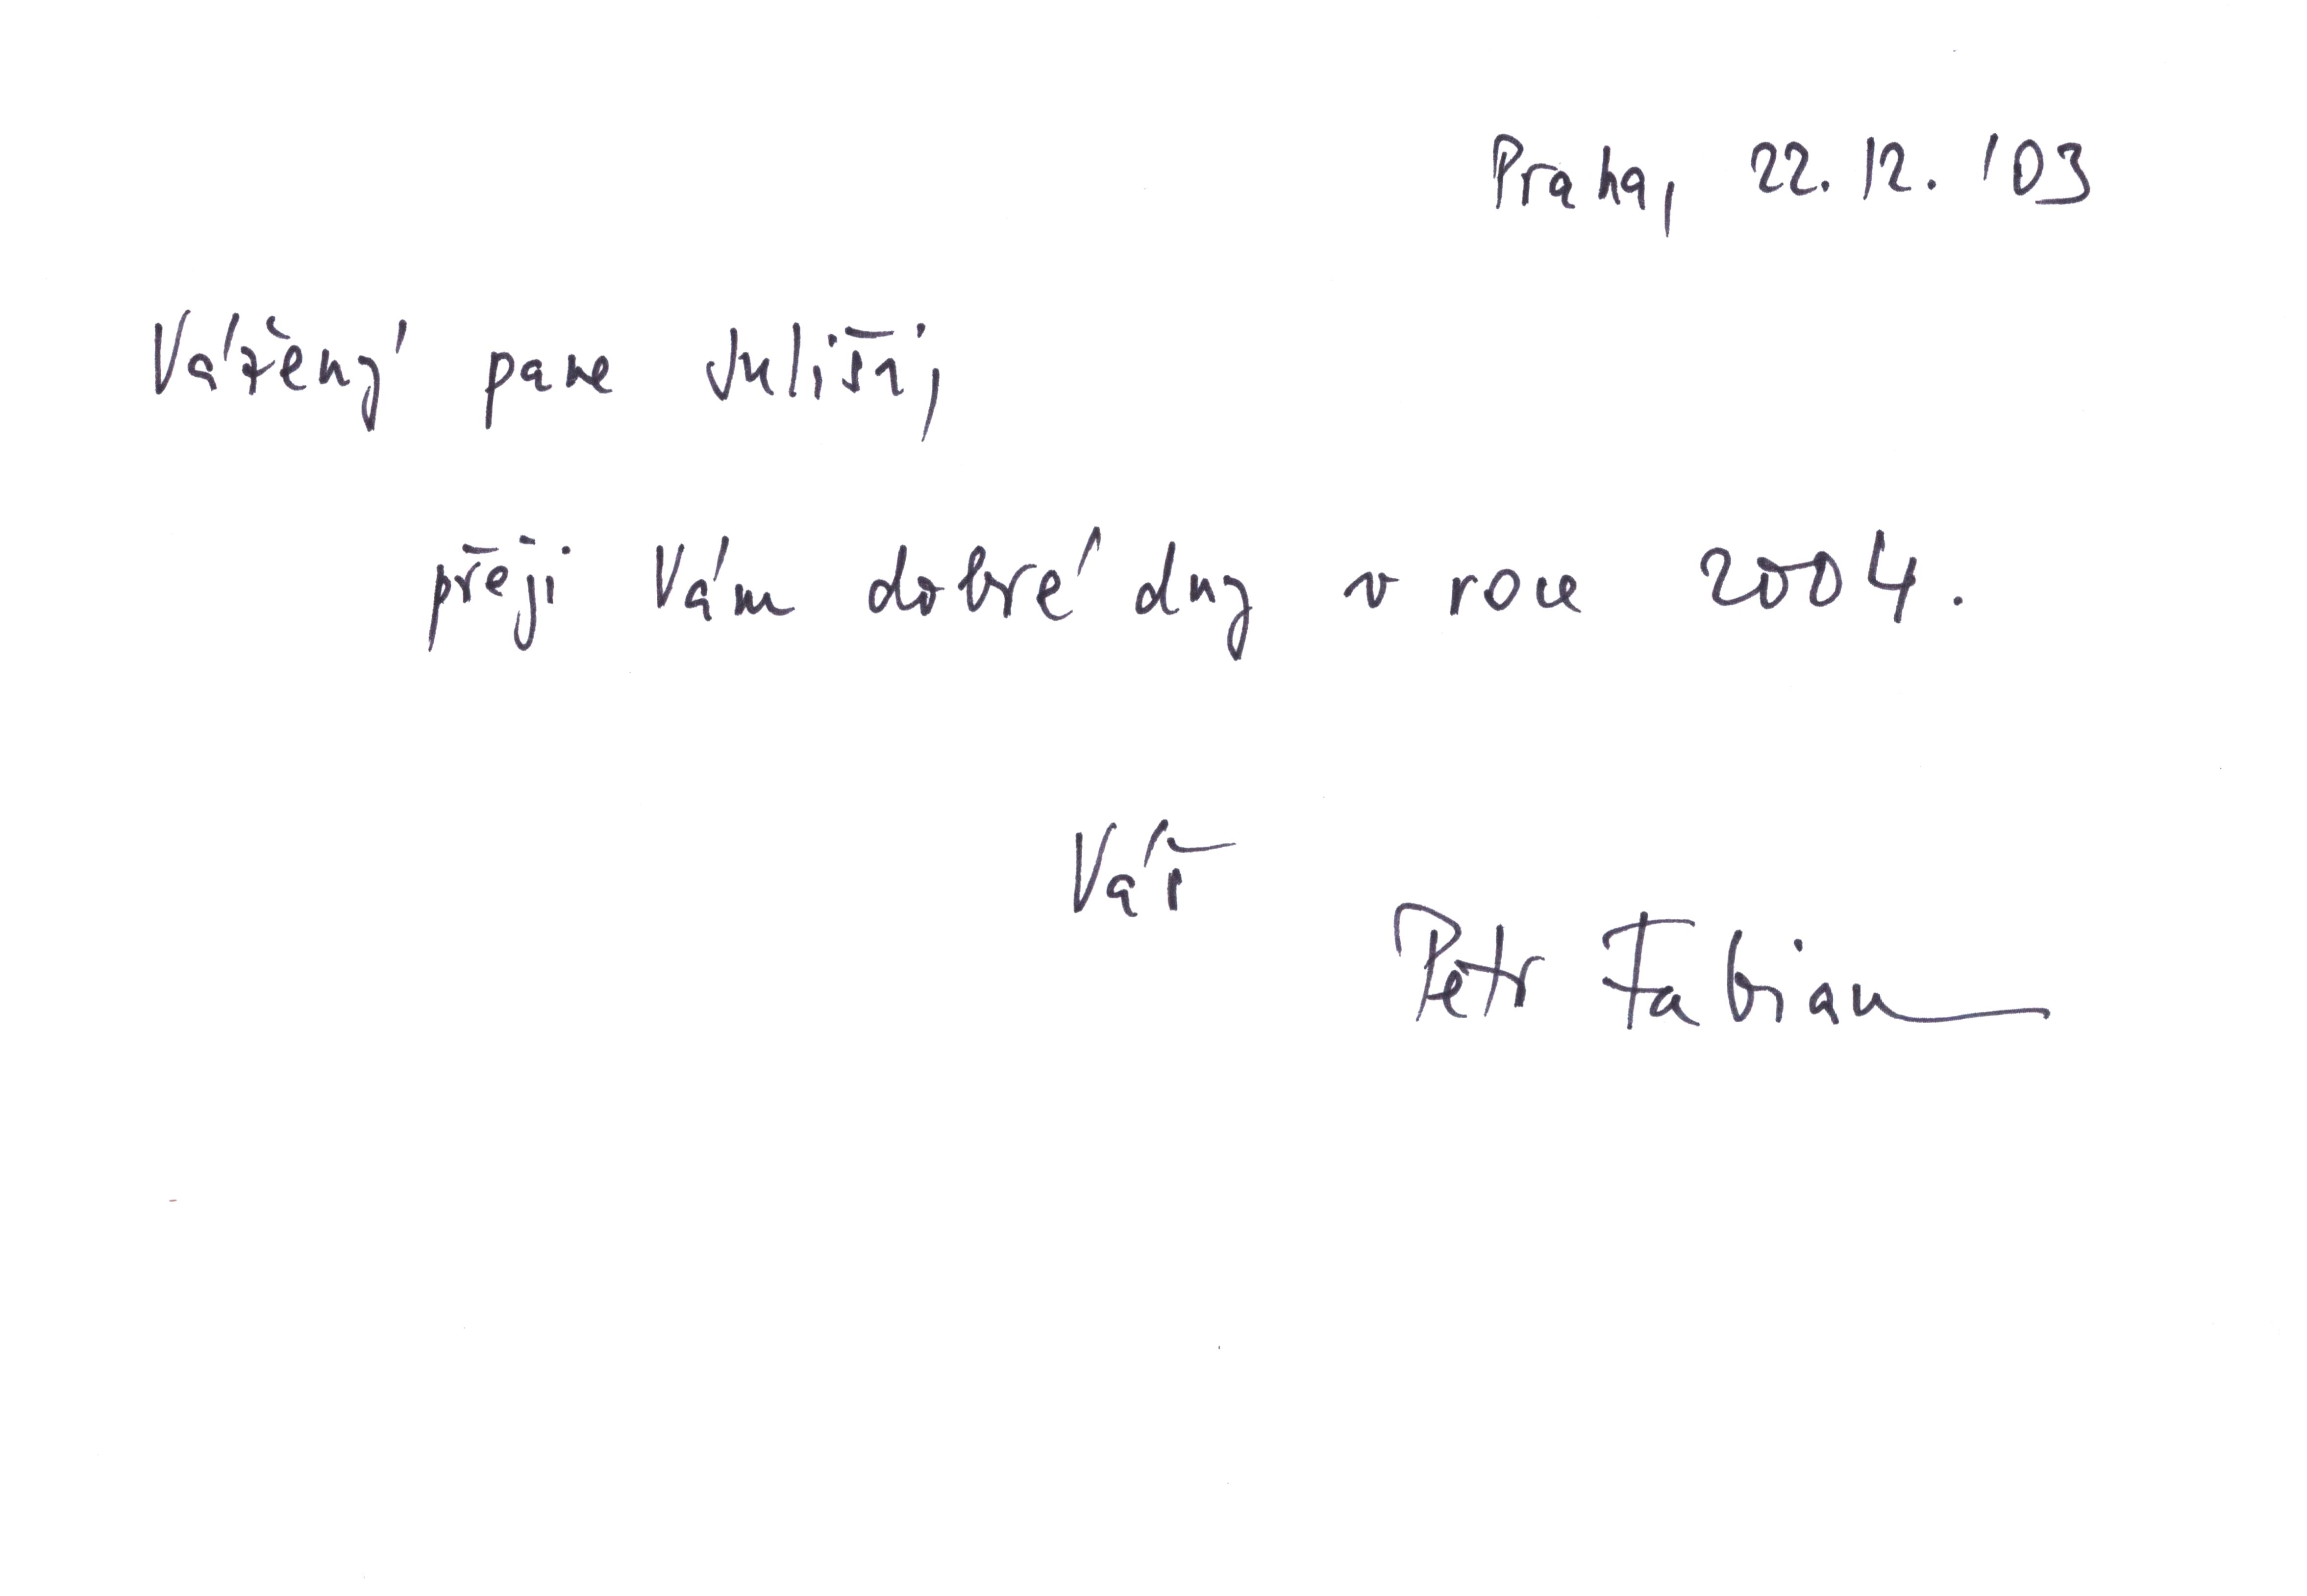 Praha, 22. 12. '03
Vážený pane
přeji Vám dobré dny v roce 2004.
Váš
Petr Fabian